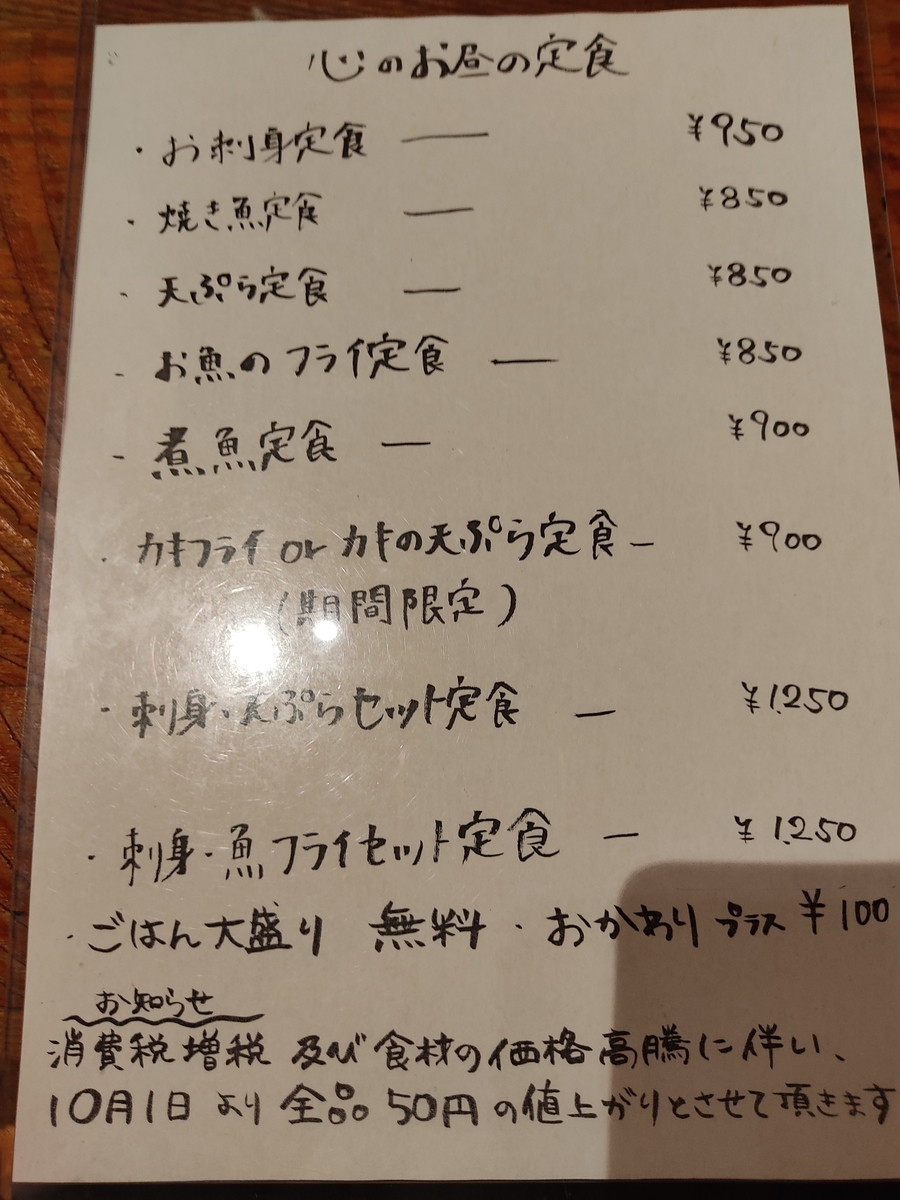 心のお昼の定食
・お刺身定食 — ¥950
・焼き魚定食 — ¥850
・天ぷら定食 — ¥850
・お魚のフライ定食 — ¥850
・煮魚定食 — ¥900
・カキフライ or カキの天ぷら定食 — ¥900
(期間限定)
・刺身・天ぷらセット定食 — ¥1,250
・刺身・魚フライセット定食 — ¥1,250
・ごはん大盛り 無料・おかわりプラス ¥100
お知らせ
消費税増税 及び食材の価格高騰に伴い、
10月1日より全品50円の値上がりとさせて頂きます